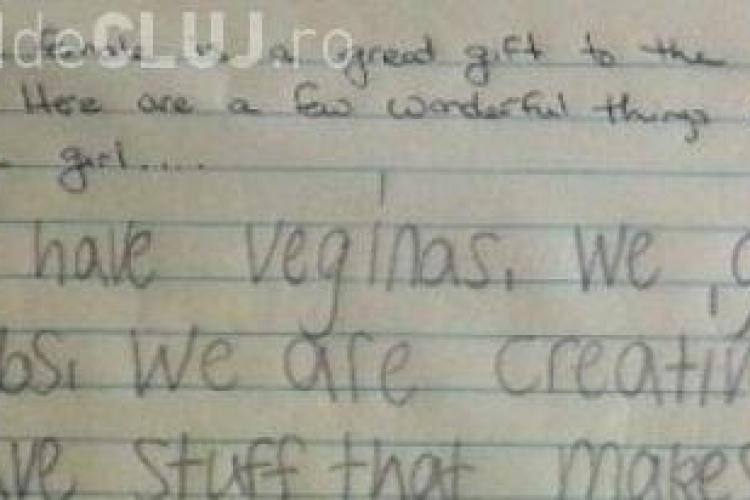 ldeCLUJ.ro
female is a great gift to the
Here are a few wonderful things
girl.....
have veginas. We g
obs. We are creativ
ave stuff that makes